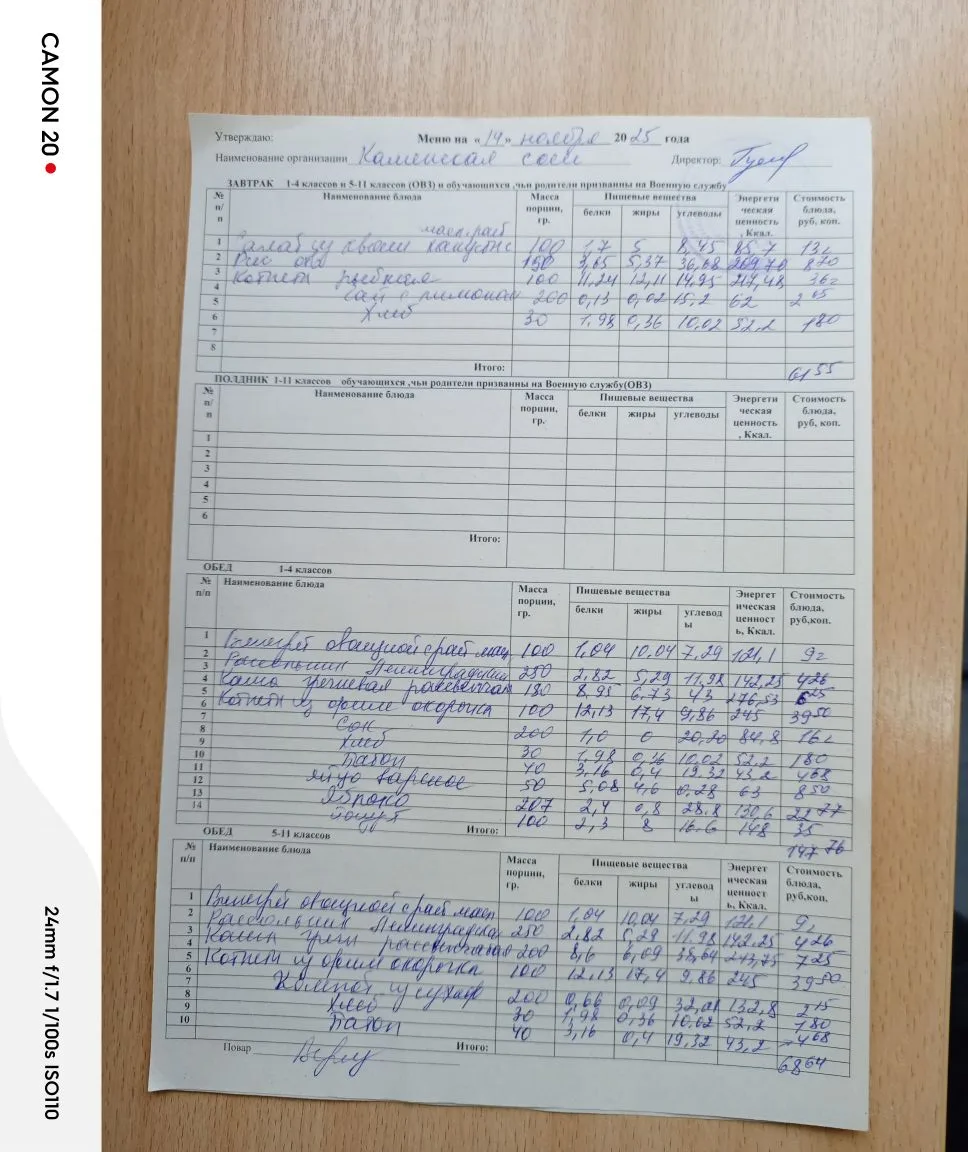 CAMON 20
24mm f/1.7 1/100s ISO110
Утверждаю: Меню на «14» ноября 2025 года
Наименование организации Каменская сош Директор:
ЗАВТРАК 1-4 классов и 5-11 классов (ОВЗ) и обучающихся ,чьи родители призванны на Военную службу
№ п/п Наименование блюда Масса порции, гр. Пищевые вещества Энергетическая ценность, Ккал. Стоимость блюда, руб, коп.
белки жиры углеводы
1 Салат из кваш капусты с масл.раст 100 1,7 5 8,45 85,7 13=
2 Рис отв 150 3,65 5,37 36,68 209,70 8 70
3 Котлета рыбная 100 11,24 12,11 14,95 217,48 36=
4
5 Чай с лимоном 200 0,13 0,02 15,2 62 2 05
6 Хлеб 30 1,98 0,36 10,02 52,2 1 80
7
8
Итого: 61 55
ПОЛДНИК 1-11 классов обучающихся ,чьи родители призванны на Военную службу(ОВЗ)
№ п/п Наименование блюда Масса порции, гр. Пищевые вещества Энергетическая ценность, Ккал. Стоимость блюда, руб, коп.
белки жиры углеводы
1
2
3
4
5
6
Итого:
ОБЕД 1-4 классов
№ п/п Наименование блюда Масса порции, гр. Пищевые вещества Энергетическая ценность, Ккал. Стоимость блюда, руб,коп.
белки жиры углеводы
1
2 Винегрет овощной с раст мас 100 1,04 10,04 7,29 121,1 9=
3 Рассольник Ленинградский 250 2,82 5,29 11,98 142,25 4 26
4 Каша гречневая рассыпчатая 150 8,95 6,73 43 276,53 6 25
5
6 Котлета из филе окорочка 100 12,13 17,4 9,86 245 39 50
7 Сок 200 1,0 0 20,20 84,8 16=
8 Хлеб 30 1,98 0,36 10,02 52,2 1 80
9
10 Батон 40 3,16 0,4 19,32 43,2 4 68
11 Яйцо вареное 50 5,08 4,6 0,28 63 8 50
12
13 Яблоко 207 2,4 0,8 28.8 130,6 22 77
14 йогурт 100 2,3 8 16.6 148 35
Итого: 147 76
ОБЕД 5-11 классов
№ п/п Наименование блюда Масса порции, гр. Пищевые вещества Энергетическая ценность, Ккал. Стоимость блюда, руб,коп.
белки жиры углеводы
1 Винегрет овощной с раст масл 100 1,04 10,04 7,29 121,1 9=
2 Рассольник Ленинградский 250 2,82 5,29 11,98 142,25 4 26
3 Каша греч рассыпчатая 200 8,6 6,09 38,64 243,75 7 25
4
5 Котлета из филе окорочка 100 12,13 17,4 9.86 245 39 50
6
7 Компот из сухоф 200 0,66 0,09 32,01 132,8 2 15
8 Хлеб 30 1,98 0,36 10,02 52,2 1 80
9 Батон 40 3,16 0,4 19,32 43,2 4 68
10
Повар Итого: 68 64